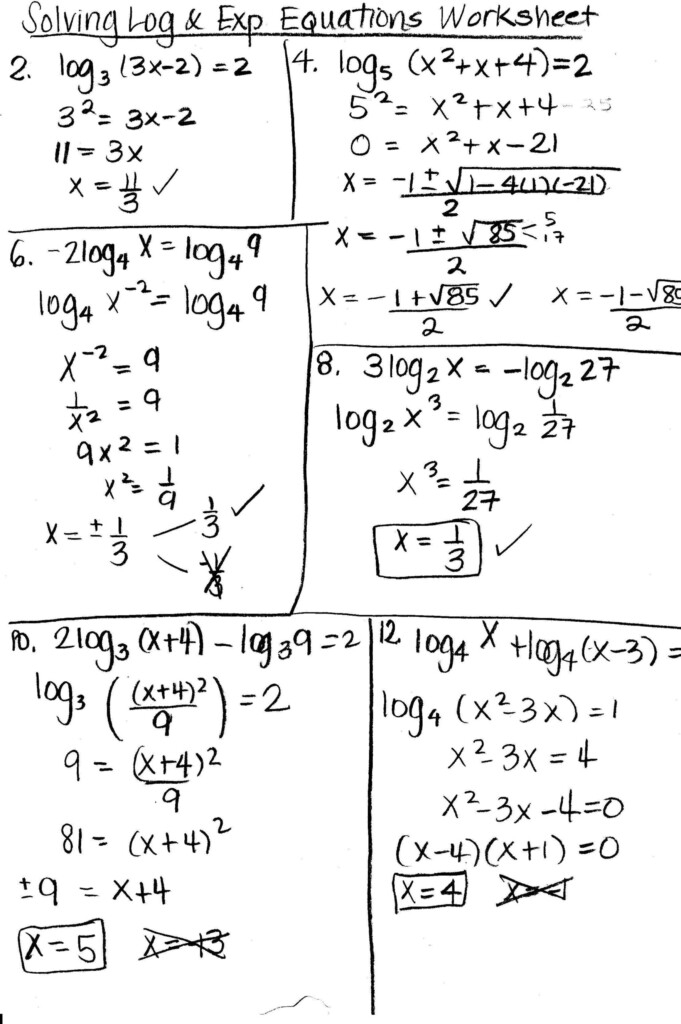 Solving Log & Exp Equations Worksheet
2. log₃ (3x-2) = 2
3² = 3x-2
11 = 3x
x = 11/3 ✓
4. log₅ (x²+x+4)=2
5² = x²+x+4 -25
0 = x²+x-21
x = -1±√(1-4(1)(-21))/2
x = -1±√85/2 < 5 17
x = -1+√85/2 ✓ x = -1-√85/2
6. -2log₄ x = log₄ 9
log₄ x⁻² = log₄ 9
x⁻² = 9
1/x² = 9
9x² = 1
x² = 1/9
x = ± 1/3 1/3 ✓
-1/3
8. 3log₂ x = -log₂ 27
log₂ x³ = log₂ 1/27
x³ = 1/27
x = 1/3 ✓
10. 2log₃ (x+4) - log₃ 9 = 2
log₃ ((x+4)²/9) = 2
9 = (x+4)²/9
81 = (x+4)²
±9 = x+4
x = 5 x = -13
12 log₄ x + log₄ (x-3) =
log₄ (x²-3x) = 1
x²-3x = 4
x²-3x-4=0
(x-4)(x+1) = 0
x=4 x=-1